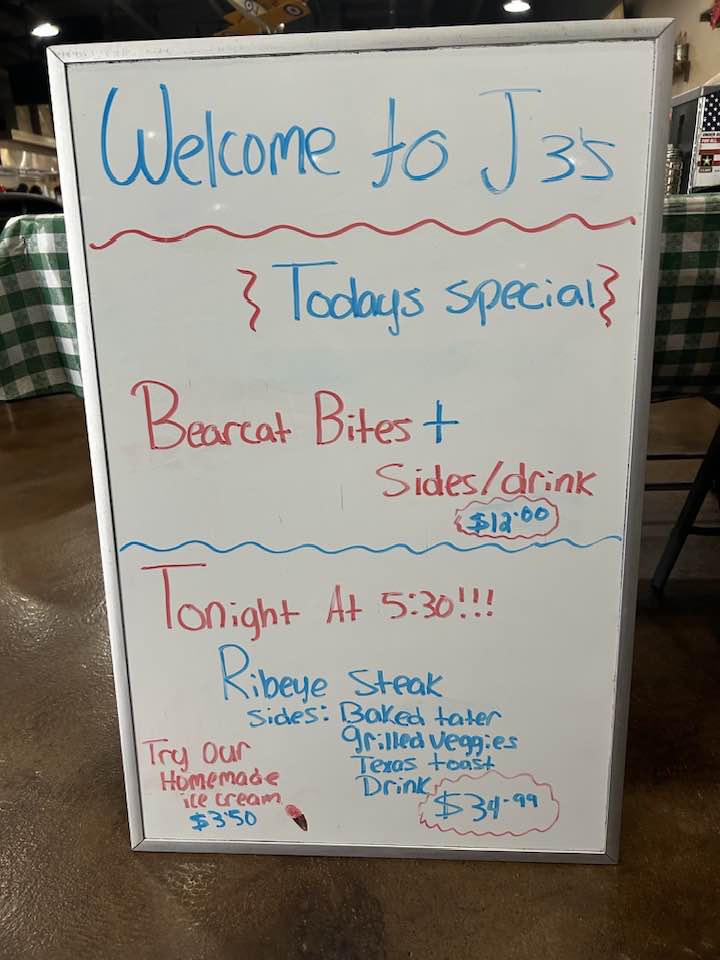 Welcome to J3's
Todays special
Bearcat Bites +
Sides/drink
$12.00
Tonight At 5:30!!!
Ribeye Steak
Sides: Baked tater
grilled veggies
Texas toast
Drink
$34.99
Try our
Homemade
ice cream
$3.50